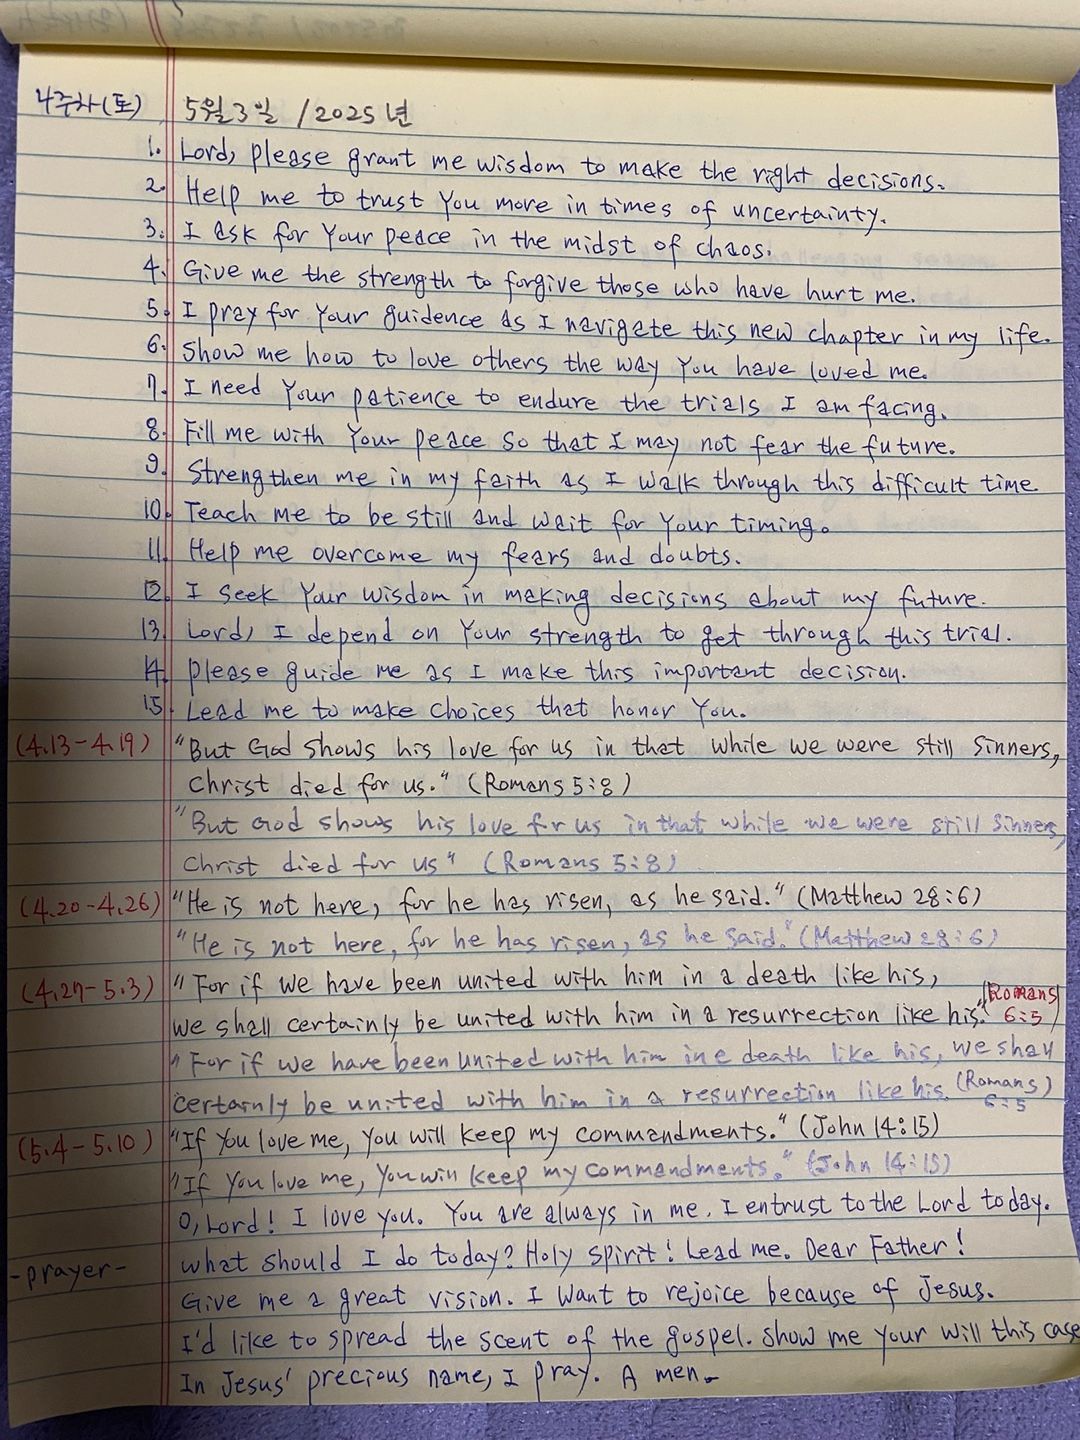 4주차(토) 5월3일 /2025년
1. Lord, please grant me wisdom to make the right decisions.
2. Help me to trust You more in times of uncertainty.
3. I ask for Your peace in the midst of chaos.
4. Give me the strength to forgive those who have hurt me.
5. I pray for Your guidence as I navigate this new chapter in my life.
6. Show me how to love others the way You have loved me.
7. I need Your patience to endure the trials I am facing.
8. Fill me with Your peace so that I may not fear the future.
9. Strengthen me in my faith as I walk through this difficult time
10. Teach me to be still and wait for Your timing.
11. Help me overcome my fears and doubts.
12. I seek Your wisdom in making decisions about my future.
13. Lord, I depend on Your strength to get through this trial.
14. please guide me as I make this important decision.
15. Lead me to make choices that honor You.
(4.13-4.19) "But God shows his love for us in that while we were still sinners,
Christ died for us." (Romans 5:8)
"But God shows his love for us in that while we were still sinners,
Christ died for us" (Romans 5:8)
(4.20-4.26) "He is not here, for he has risen, as he said." (Matthew 28:6)
"He is not here, for he has risen, as he said." (Matthew 28:6)
(4.27-5.3) "For if we have been united with him in a death like his,
we shall certainly be united with him in a resurrection like his." (Romans 6:5)
"For if we have been united with him in a death like his, we shall
certainly be united with him in a resurrection like his. (Romans) 6:5
(5.4-5.10) "If You love me, you will keep my commandments." (John 14:15)
"If You love me, you will keep my commandments." (John 14:15)
O, Lord! I love you. You are always in me. I entrust to the Lord today.
-prayer- what should I do today? Holy spirit! Lead me. Dear Father!
Give me a great vision. I want to rejoice because of Jesus.
I'd like to spread the scent of the gospel. Show me your will this case
In Jesus' precious name, I pray. A men.